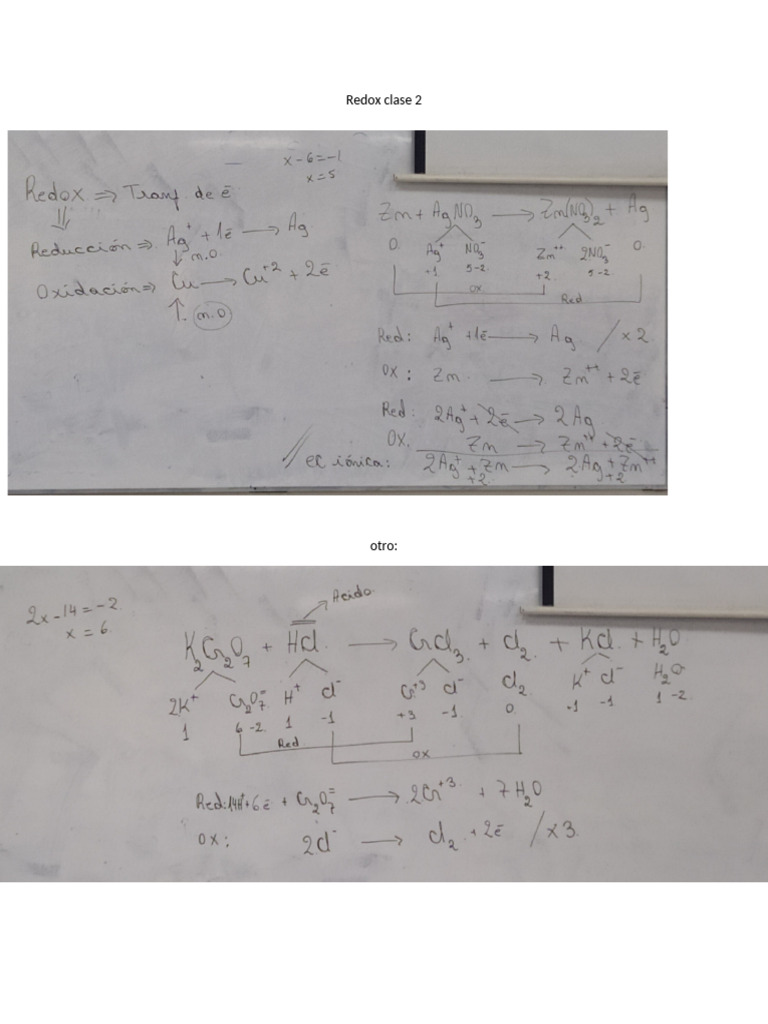 Redox clase 2
x - 6 = -1
x = 5
Redox ⇒ Transf. de ē
⇓
Reducción ⇒ Ag⁺ + 1ē → Ag
↓ n.o
Oxidación ⇒ Cu → Cu⁺² + 2ē
↑ n.o
Zn + AgNO₃ → Zn(NO₃)₂ + Ag
0 Ag⁺ NO₃⁻ Zn⁺⁺ 2NO₃⁻ 0
+1 5 -2 +2 5 -2
ox
Red
Red: Ag⁺ + 1ē → Ag / x 2
ox: Zn → Zn⁺⁺ + 2ē
Red: 2Ag⁺ + 2ē → 2Ag
Ox. Zn → Zn⁺⁺ + 2ē
ec iónica: 2Ag⁺ + Zn → 2Ag + Zn⁺⁺
+2 +2
otro:
2x - 14 = -2
x = 6
Acido
K₂Cr₂O₇ + HCl → CrCl₃ + Cl₂ + KCl + H₂O
2K⁺ Cr₂O₇⁼ H⁺ Cl⁻ Cr⁺³ Cl⁻ Cl₂ K⁺ Cl⁻ H₂O
1 6 -2 1 -1 +3 -1 0 -1 1 -2
Red
ox
Red: 14H⁺ + 6ē + Cr₂O₇⁼ → 2Cr⁺³ + 7H₂O
ox: 2Cl⁻ → Cl₂ + 2ē / x 3